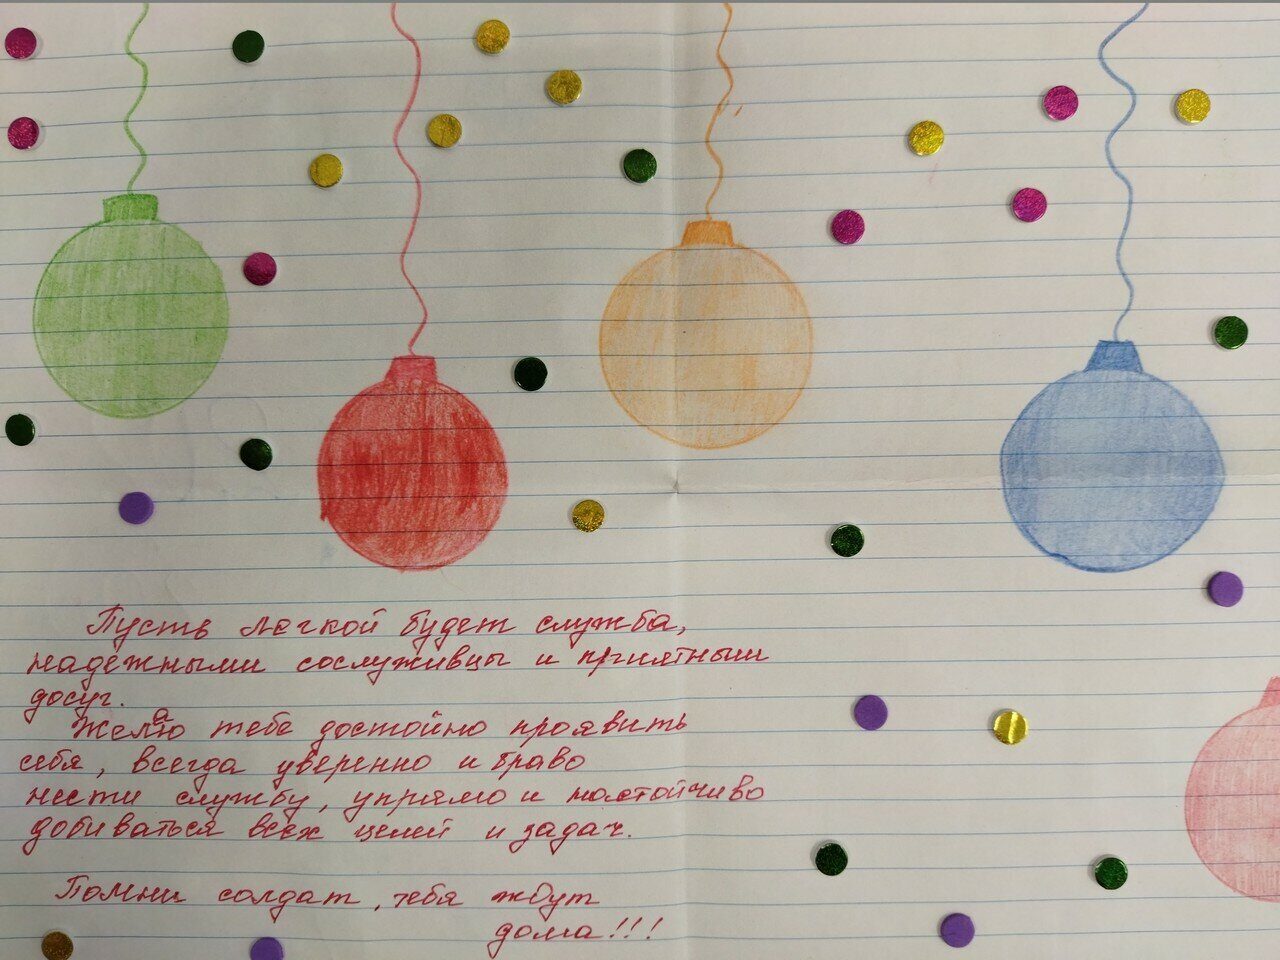 Пусть легкой будет служба,
надежными сослуживцы и приятным
досуг.
Желаю тебе достойно проявить
себя, всегда уверенно и браво
нести службу, упрямо и настойчиво
добиваться всех целей и задач.
Помни солдат, тебя ждут
дома!!!